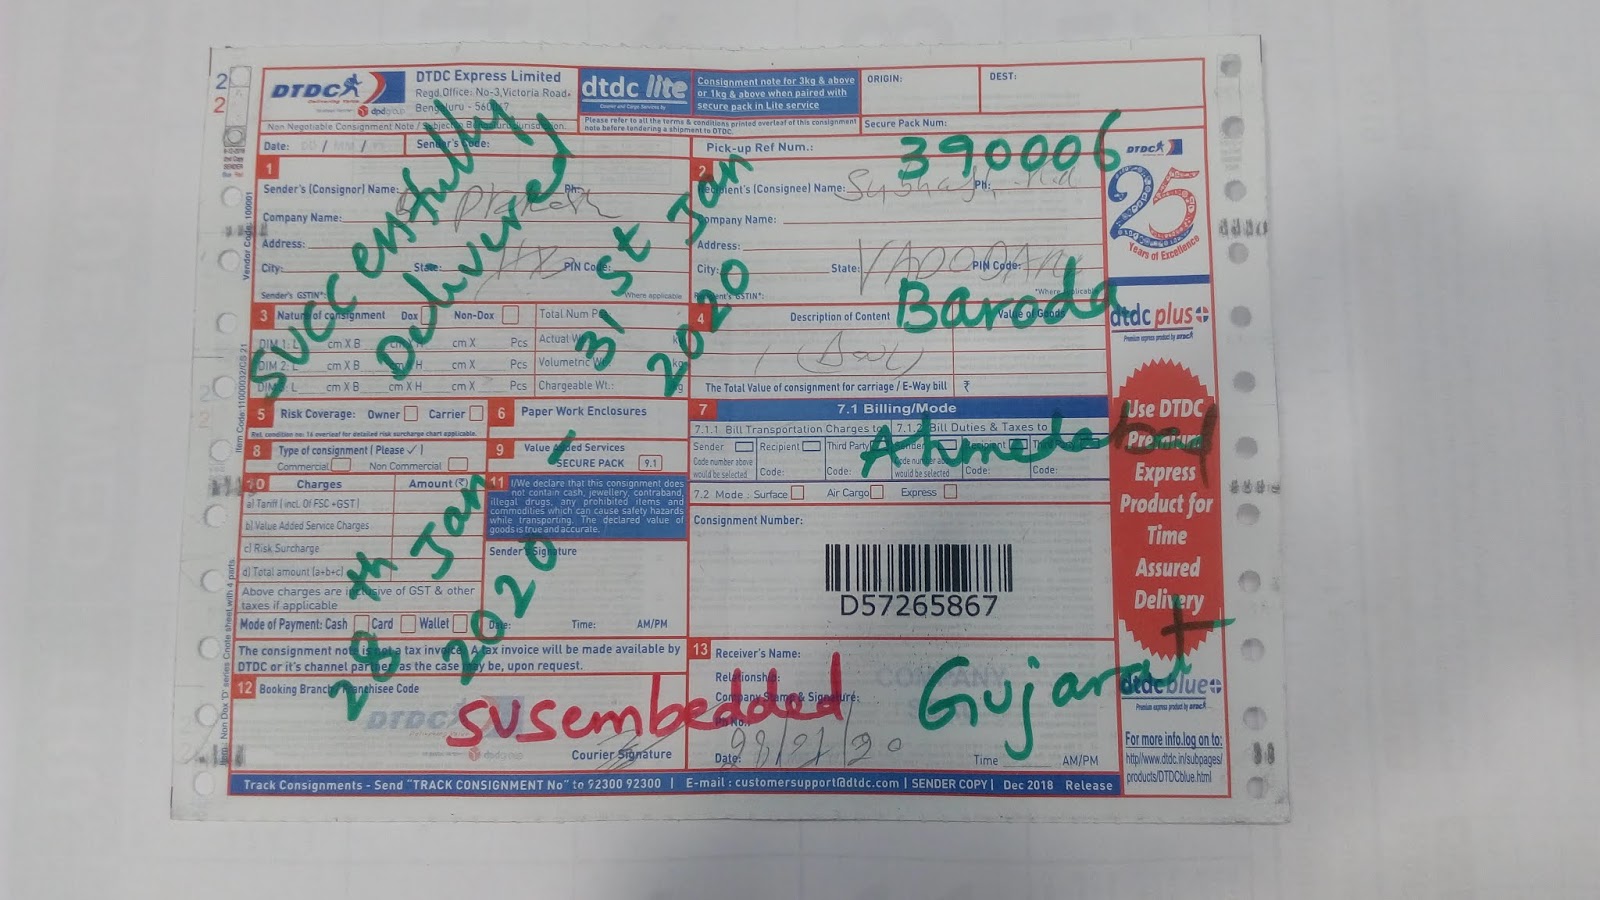 2
2
DTDC
Delivering Value
dpdgroup
DTDC Express Limited
Regd.Office: No-3,Victoria Road,
Bengaluru - 560047
dtdc lite
Courier and Cargo Services by
Consignment note for 3kg & above
or 1kg & above when paired with
secure pack in Lite service
ORIGIN:
DEST:
Non Negotiable Consignment Note / Subject to Bengaluru Jurisdiction.
Please refer to all the terms & conditions printed overleaf of this consignment
note before tendering a shipment to DTDC.
Secure Pack Num:
Date:
Sender's Code:
Pick-up Ref Num.:
390006
DTDC
25
Years of Excellence
1
Sender's (Consignor) Name:
Ph:
Prakash
Company Name:
Address:
City:
State:
PIN Code:
Sender's GSTIN*:
*Where applicable
2
Recipient's (Consignee) Name:
Subhash
Ph:
Company Name:
Address:
City:
State:
VADODARA
PIN Code:
Recipient's GSTIN*:
*Where applicable
SUCCENSfully
Delivured
31 st Jan
2020
Baroda
3 Nature of consignment Dox Non-Dox
DIM 1: L cm X B cm X H cm X Pcs
DIM 2: L cm X B cm X H cm X Pcs
DIM 3: L cm X B cm X H cm X Pcs
Total Num Pcs
Actual Wt.: kg
Volumetric Wt.: kg
Chargeable Wt.: kg
4 Description of Content
Value of Goods
The Total Value of consignment for carriage / E-Way bill ₹
dtdc plus+
Premium express product by DTDC
5 Risk Coverage: Owner Carrier
Ref. condition no: 16 overleaf for detailed risk surcharge chart applicable.
6 Paper Work Enclosures
7 7.1 Billing/Mode
7.1.1 Bill Transportation Charges to
7.1.2 Bill Duties & Taxes to
Sender Recipient Third Party
Sender Recipient Third Party
Code number above
would be selected
Code: Code:
Code number above
would be selected
Code: Code:
Ahmedabad
7.2 Mode : Surface Air Cargo Express
8 Type of consignment ( Please ✓ )
Commercial Non Commercial
9 Value Added Services
SECURE PACK 9.1
10 Charges Amount (₹)
a) Tariff ( incl. Of FSC +GST )
b) Value Added Service Charges
c) Risk Surcharge
d) Total amount (a+b+c)
Above charges are inclusive of GST & other
taxes if applicable
Mode of Payment: Cash Card Wallet
11 I/We declare that this consignment does
not contain cash, jewellery, contraband,
illegal drugs, any prohibited items and
commodities which can cause safety hazards
while transporting. The declared value of
goods is true and accurate.
Sender's Signature
Date: Time: AM/PM
28 th Jan -
2020
Consignment Number:
D57265867
Use DTDC
Premium
Express
Product for
Time
Assured
Delivery
The consignment note is not a tax invoice. A tax invoice will be made available by
DTDC or it's channel partner, as the case may be, upon request.
12 Booking Branch/Franchisee Code
DTDC
dpdgroup
Courier Signature
susembedded
13 Receiver's Name:
Relationship:
Company Stamp & Signature:
COMPANY
Ph No.:
Date:
Time AM/PM
Gujarat
dtdc blue+
Premium express product by DTDC
For more info.log on to:
http//www.dtdc.in/subpages/
products/DTDCblue.html
Track Consignments - Send “TRACK CONSIGNMENT No” to 92300 92300 | E-mail : customersupport@dtdc.com | SENDER COPY | Dec 2018 Release
Vendor Code: 100001